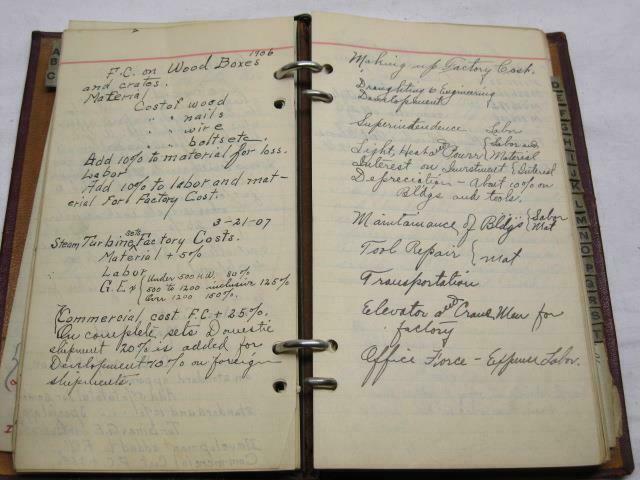 1906
F.C. on Wood Boxes
and crates.
Material
Cost of wood
" " nails
" " wire
" " bolts etc.
Add 10% to material for loss.
Labor
Add 10% to labor and mat-
erial for Factory Cost.
3-21-07
Steam Turbine Sets Factory Costs.
Material + 5%
Labor
G.E. Under 500 K.W. 80%
500 to 1200 inclusive 125%
Over 1200 150%.
Commercial cost F.C. + 25%.
On complete sets Domestic
shipment 20% is added for
Development 10% on foreign
shipments.
Making up Factory Cost.
Draughting & Engineering
Development
Superintendence Labor
Light, Heat and Power { Labor and Material
Interest on Investment { Interest
Depreciation - About 10% on
Bldgs and tools.
Maintainance of Bldgs { Labor Mat
Tool Repair { Mat
Transportation
Elevator and Crane Men for
factory
Office Force - Expense Labor.
A
B
C
D
E
F
G
H
I
J
K
L
M
N
O
P
Q
R
S
T